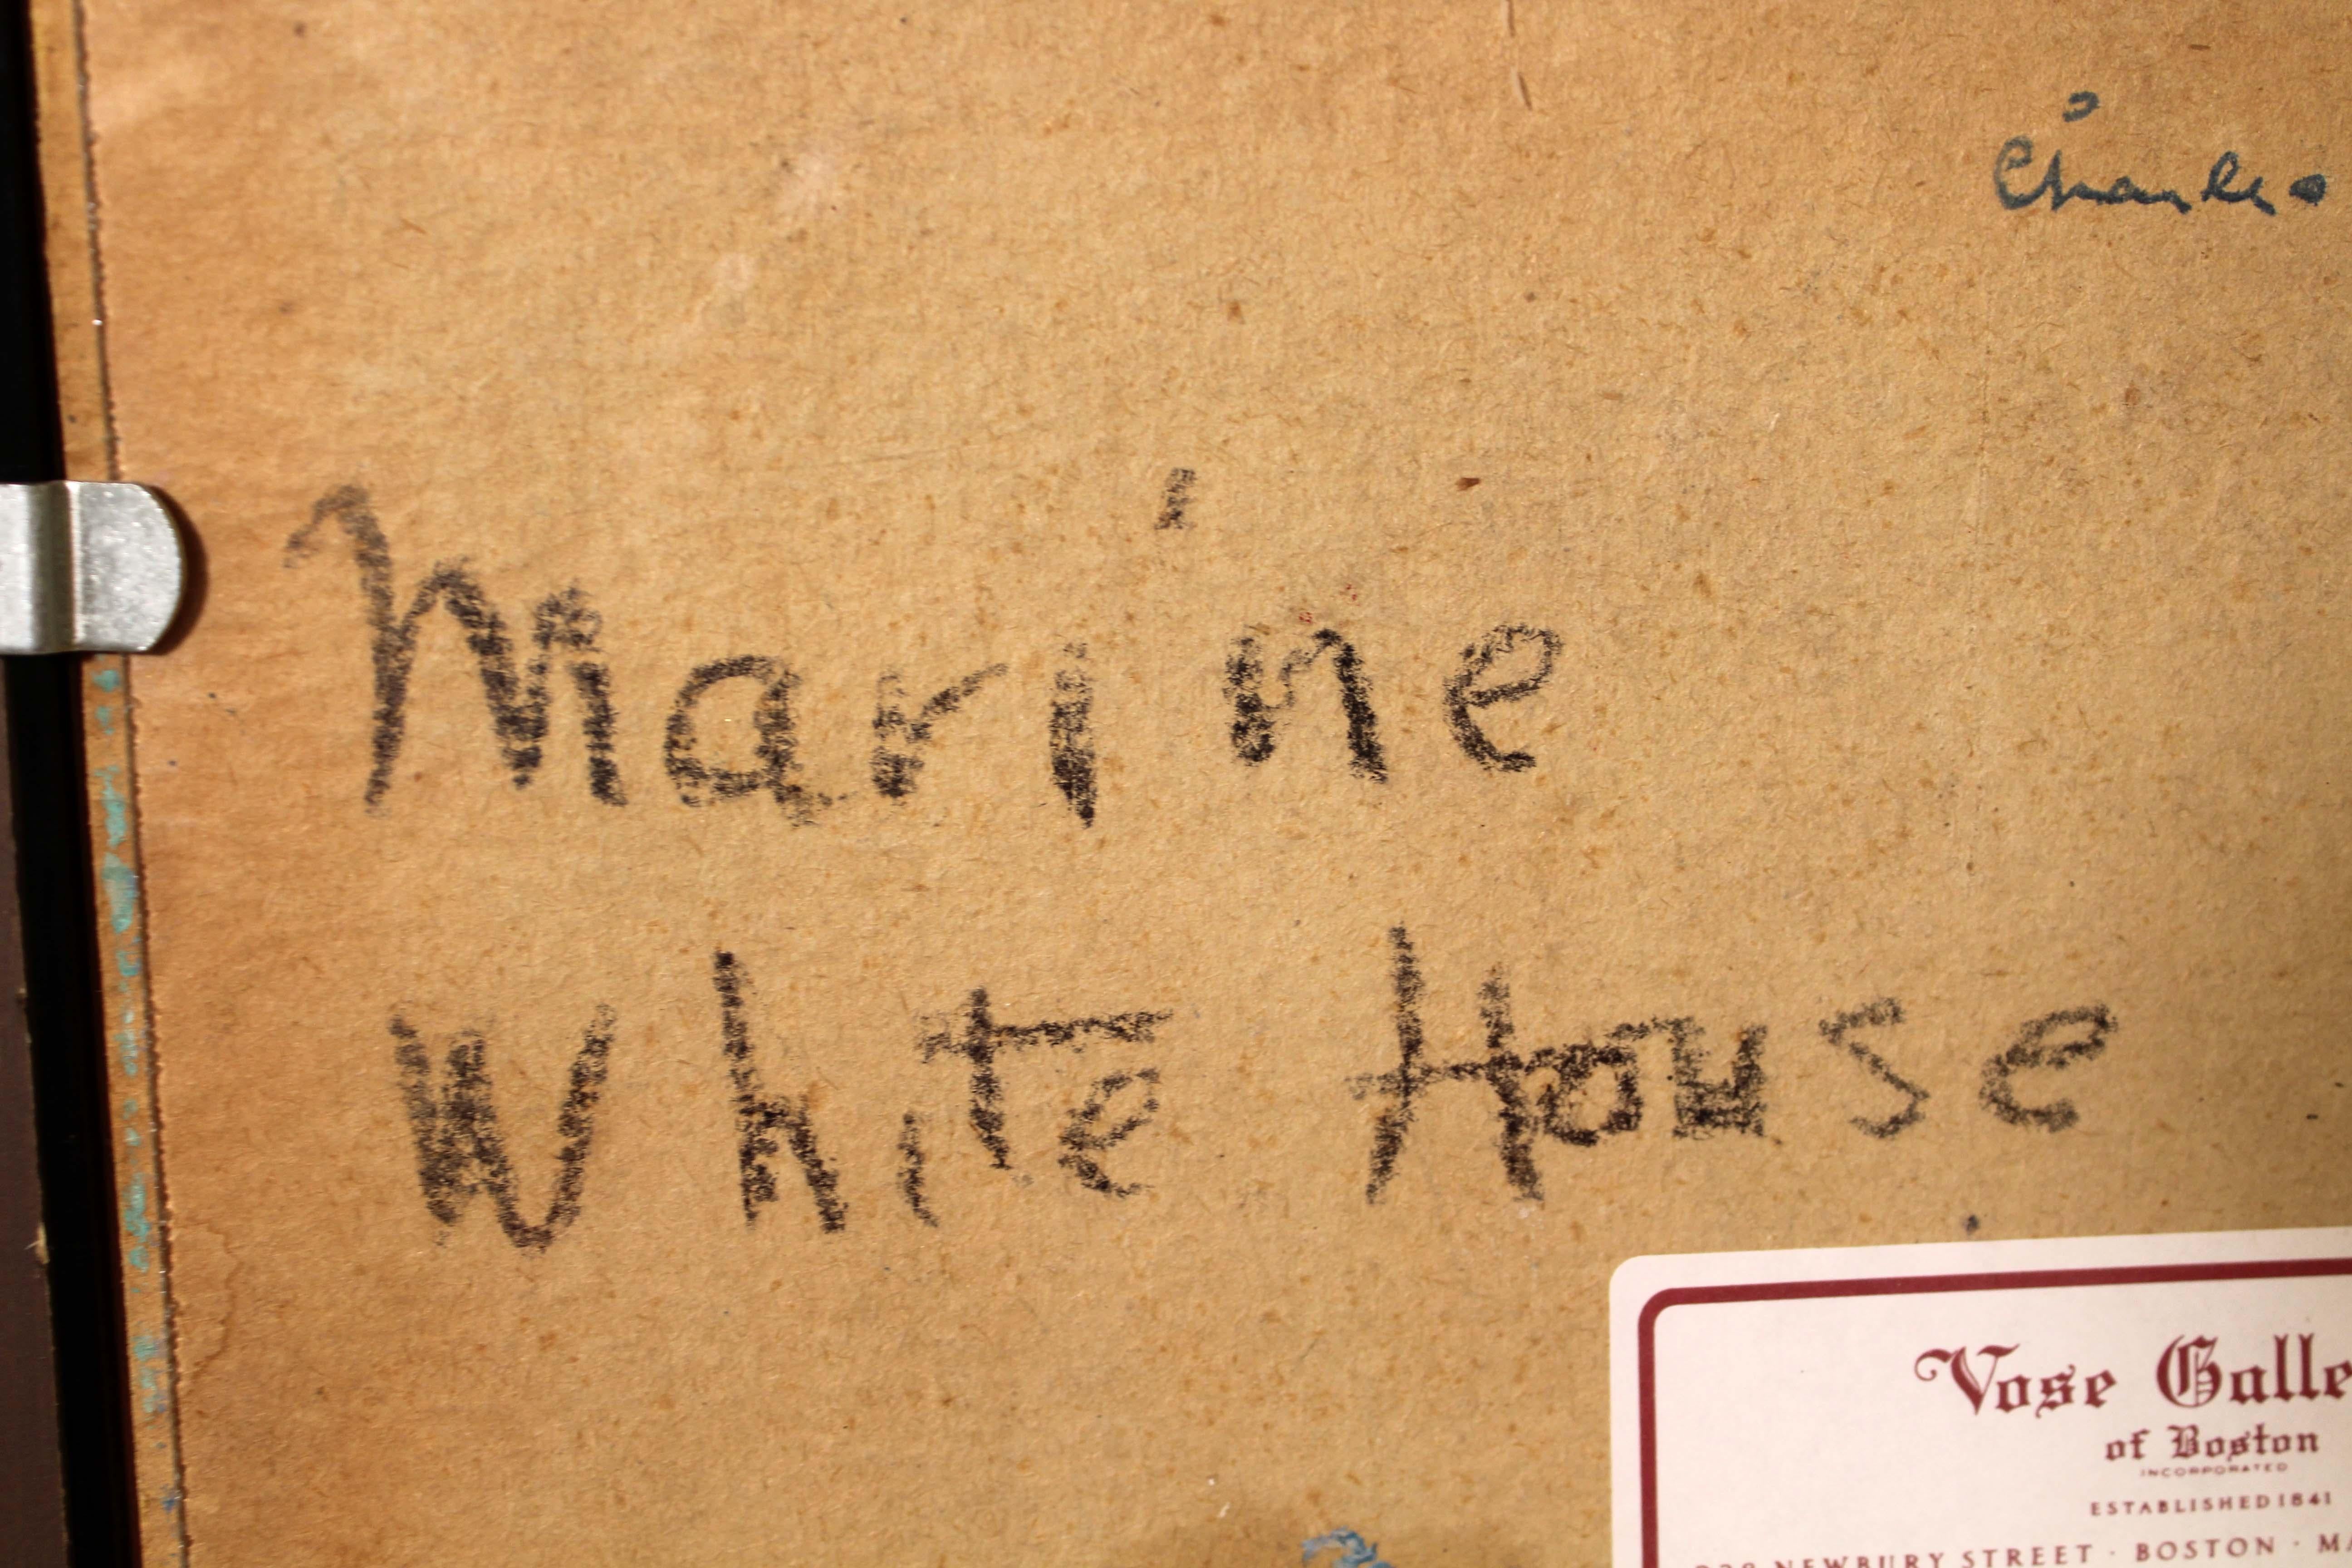 Charles
Marine
White House
Vose Galle
of Boston
INCORPORATED
ESTABLISHED 1841
NEWBURY STREET · BOSTON · M